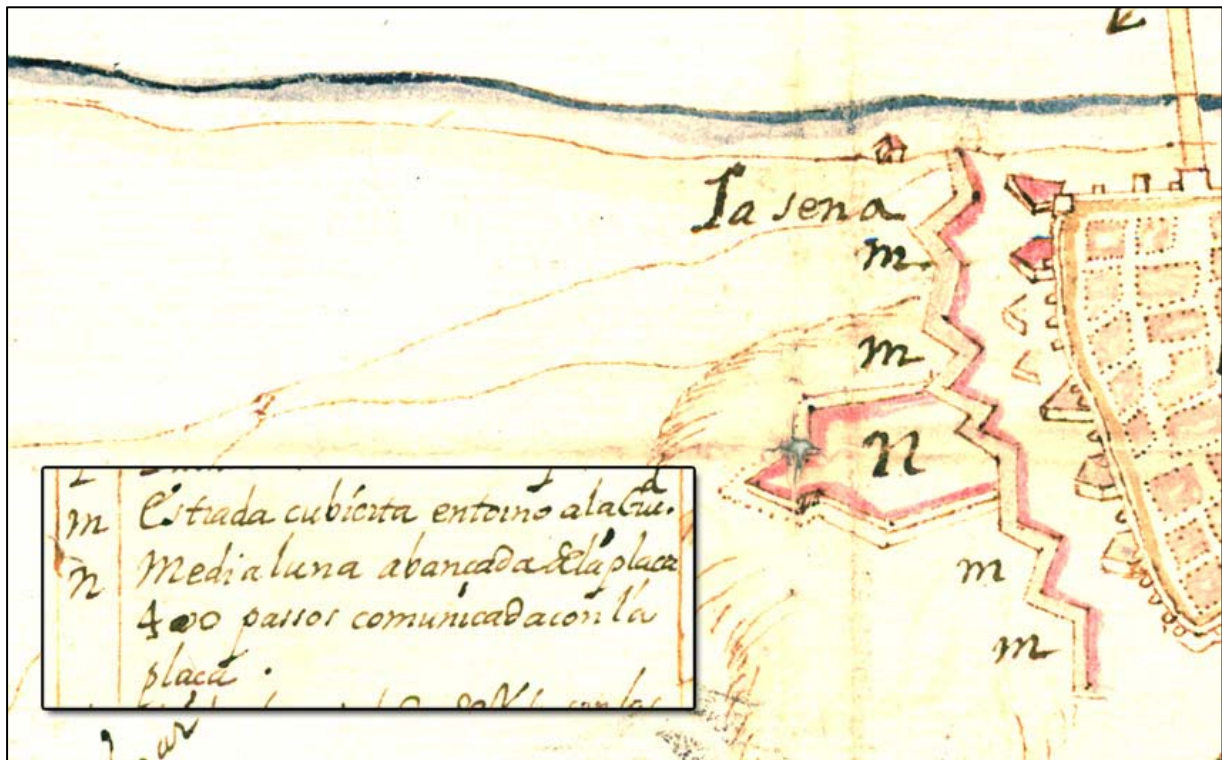 la sena
m
m
N
m
m
m Estrada cubierta entorno a la Ciu.
n Media luna abancada de la placa
400 passos comunicada con la
placa .